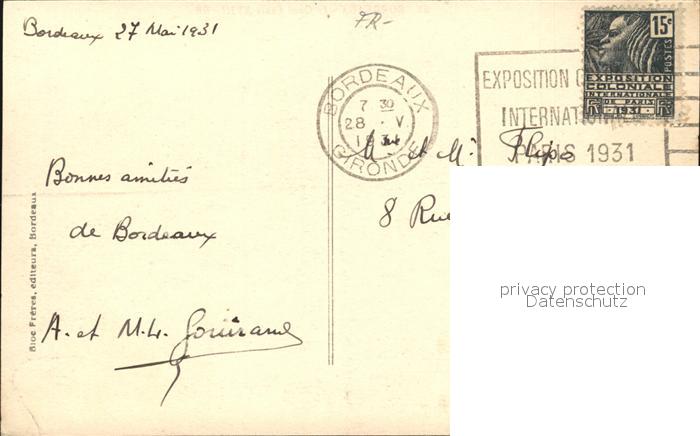 Bordeaux 27 Mai 1931
FR-
15c
POSTES
EXPOSITION
COLONIALE
INTERNATIONALE
DE PARIS
1931
BORDEAUX
7 30
28 V
GIRONDE
EXPOSITION
INTERNATION
PARIS 1931
M et Me Flipo
8 Rue
Bonnes amitiés
de Bordeaux
A. et M.L.
Bloc Frères, editeurs, Bordeaux
privacy protection
Datenschutz